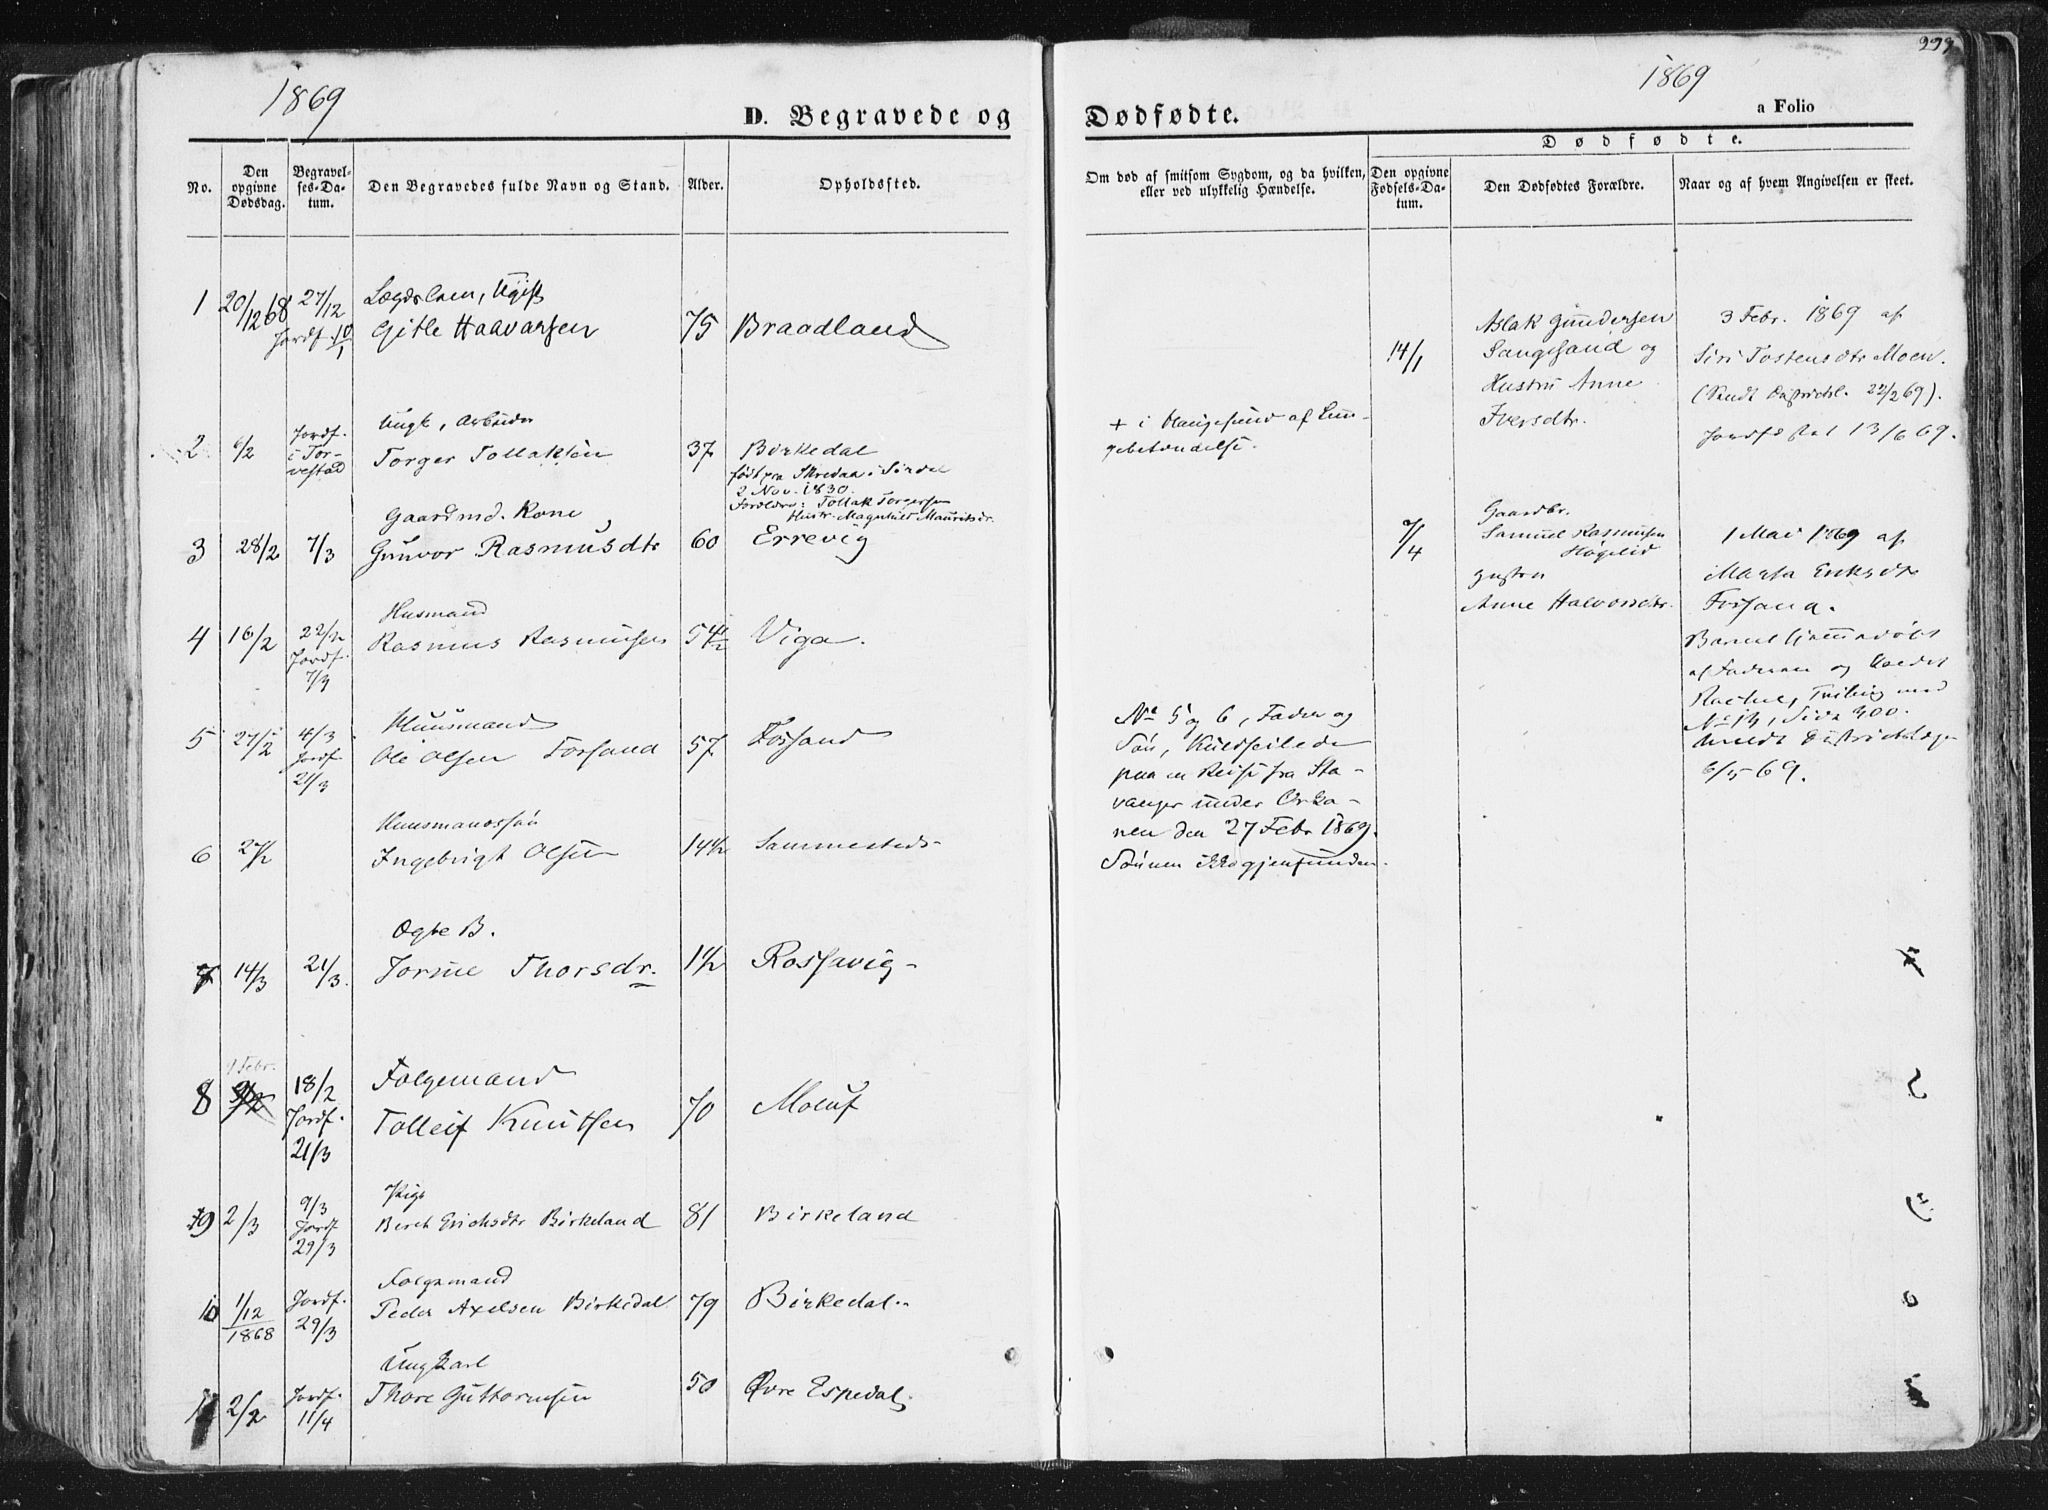 1869
D. Begravede og
No.
Den opgivne Dødsdag.
Begravelses-Datum.
Den Begravedes fulde Navn og Stand.
Alder.
Opholdssted.
1 20/12 68 27/12 Lægdslem, Ugift
Jordf. 10/1 Gitle Haavarsen 75 Braadland
Ungk, Arbeider
2 6/2 Jordf. i Torvestad Torger Tollaksen 37 Birkedal
født paa Skredaa i Sirdal
2 Nov. 1830.
Forældre: Tollak Torgersen
Hustr. Magnhild Mauritsdr.
Gaardmd. Kone
3 28/2 7/3 Gunvor Rasmusdtr 60 Errevig
Husmand
4 16/2 22/2 Rasmus Rasmussen 54 1/2 Viga.
Jordf. 7/3
Huusmand
5 27/2 4/3 Ole Olsen Forsand 57 Fossand
Jordf 21/3
Huusmandssøn
6 27/2 Ingebrigt Olsen 14 1/2 Sammesteds-
Ægte B.
7 14/3 21/3. Jorine Thorsdr. 1 1/2 Rossavig-
9 Febr.
8 18/2 Folgemand
Jordf. 21/3 Tolleif Knutsen 70 Moluf
Pige
9 2/3 9/3 Jordf 29/3 Beret Erichsdtr Birkeland 81 Birkeland
Folgemand
10 1/12 1868 Jordf. 29/3 Peder Axelsen Birkedal 79 Birkedal.
Ungkarl
11 2/2 Jordf. 11/4 Thore Guttormsen 50 Øvre Espedal.
1869
Dødfødte.
a Folio
Dødfødte.
Om død af smitsom Sygdom, og da hvilken,
eller ved ulykkelig Hændelse.
Den opgivne Fødsels-Datum.
Den Dødfødtes Forældre.
Naar og af hvem Angivelsen er skeet.
+ i Haugesund af Lungebetændelse.
14/1
Aslak Gundersen
Sangesand og
Hustru Anne
Iversdtr.
3 Febr. 1869 af
Siri Tostensdtr Moen.
(Sendt Distriktsl. 22/2 69).
Jordfæstet 13/6 69.
7/4
Gaardbr.
Samuel Rasmussen
Høgelid
Anne Halvorsdtr.
1 Mai 1869 af
Marta Eriksdtr
Forsand.
Barnet hjemmedøbt
af Faderen og kaldet
Rachel, Tvilling med
No 13, Side 300.
Anmeldt Distriktslægen
6/5 69.
No 5 og 6, Fader og
Søn, kuldseilede
paa en Reise fra Sta-
vanger under Orka-
nen den 27 Febr 1869.
Sønnen ikke gjenfunden.